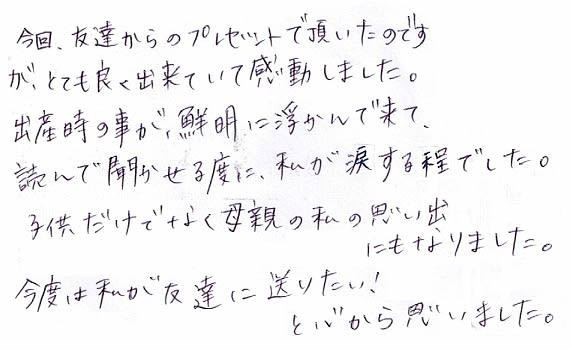 今回、友達からのプレゼントで頂いたのです
が、とても良く出来ていて感動しました。
出産時の事が、鮮明に浮かんで来て、
読んで聞かせる度に、私が涙する程でした。
子供だけでなく母親の私の思い出
にもなりました。
今度は私が友達に送りたい!
と心から思いました。